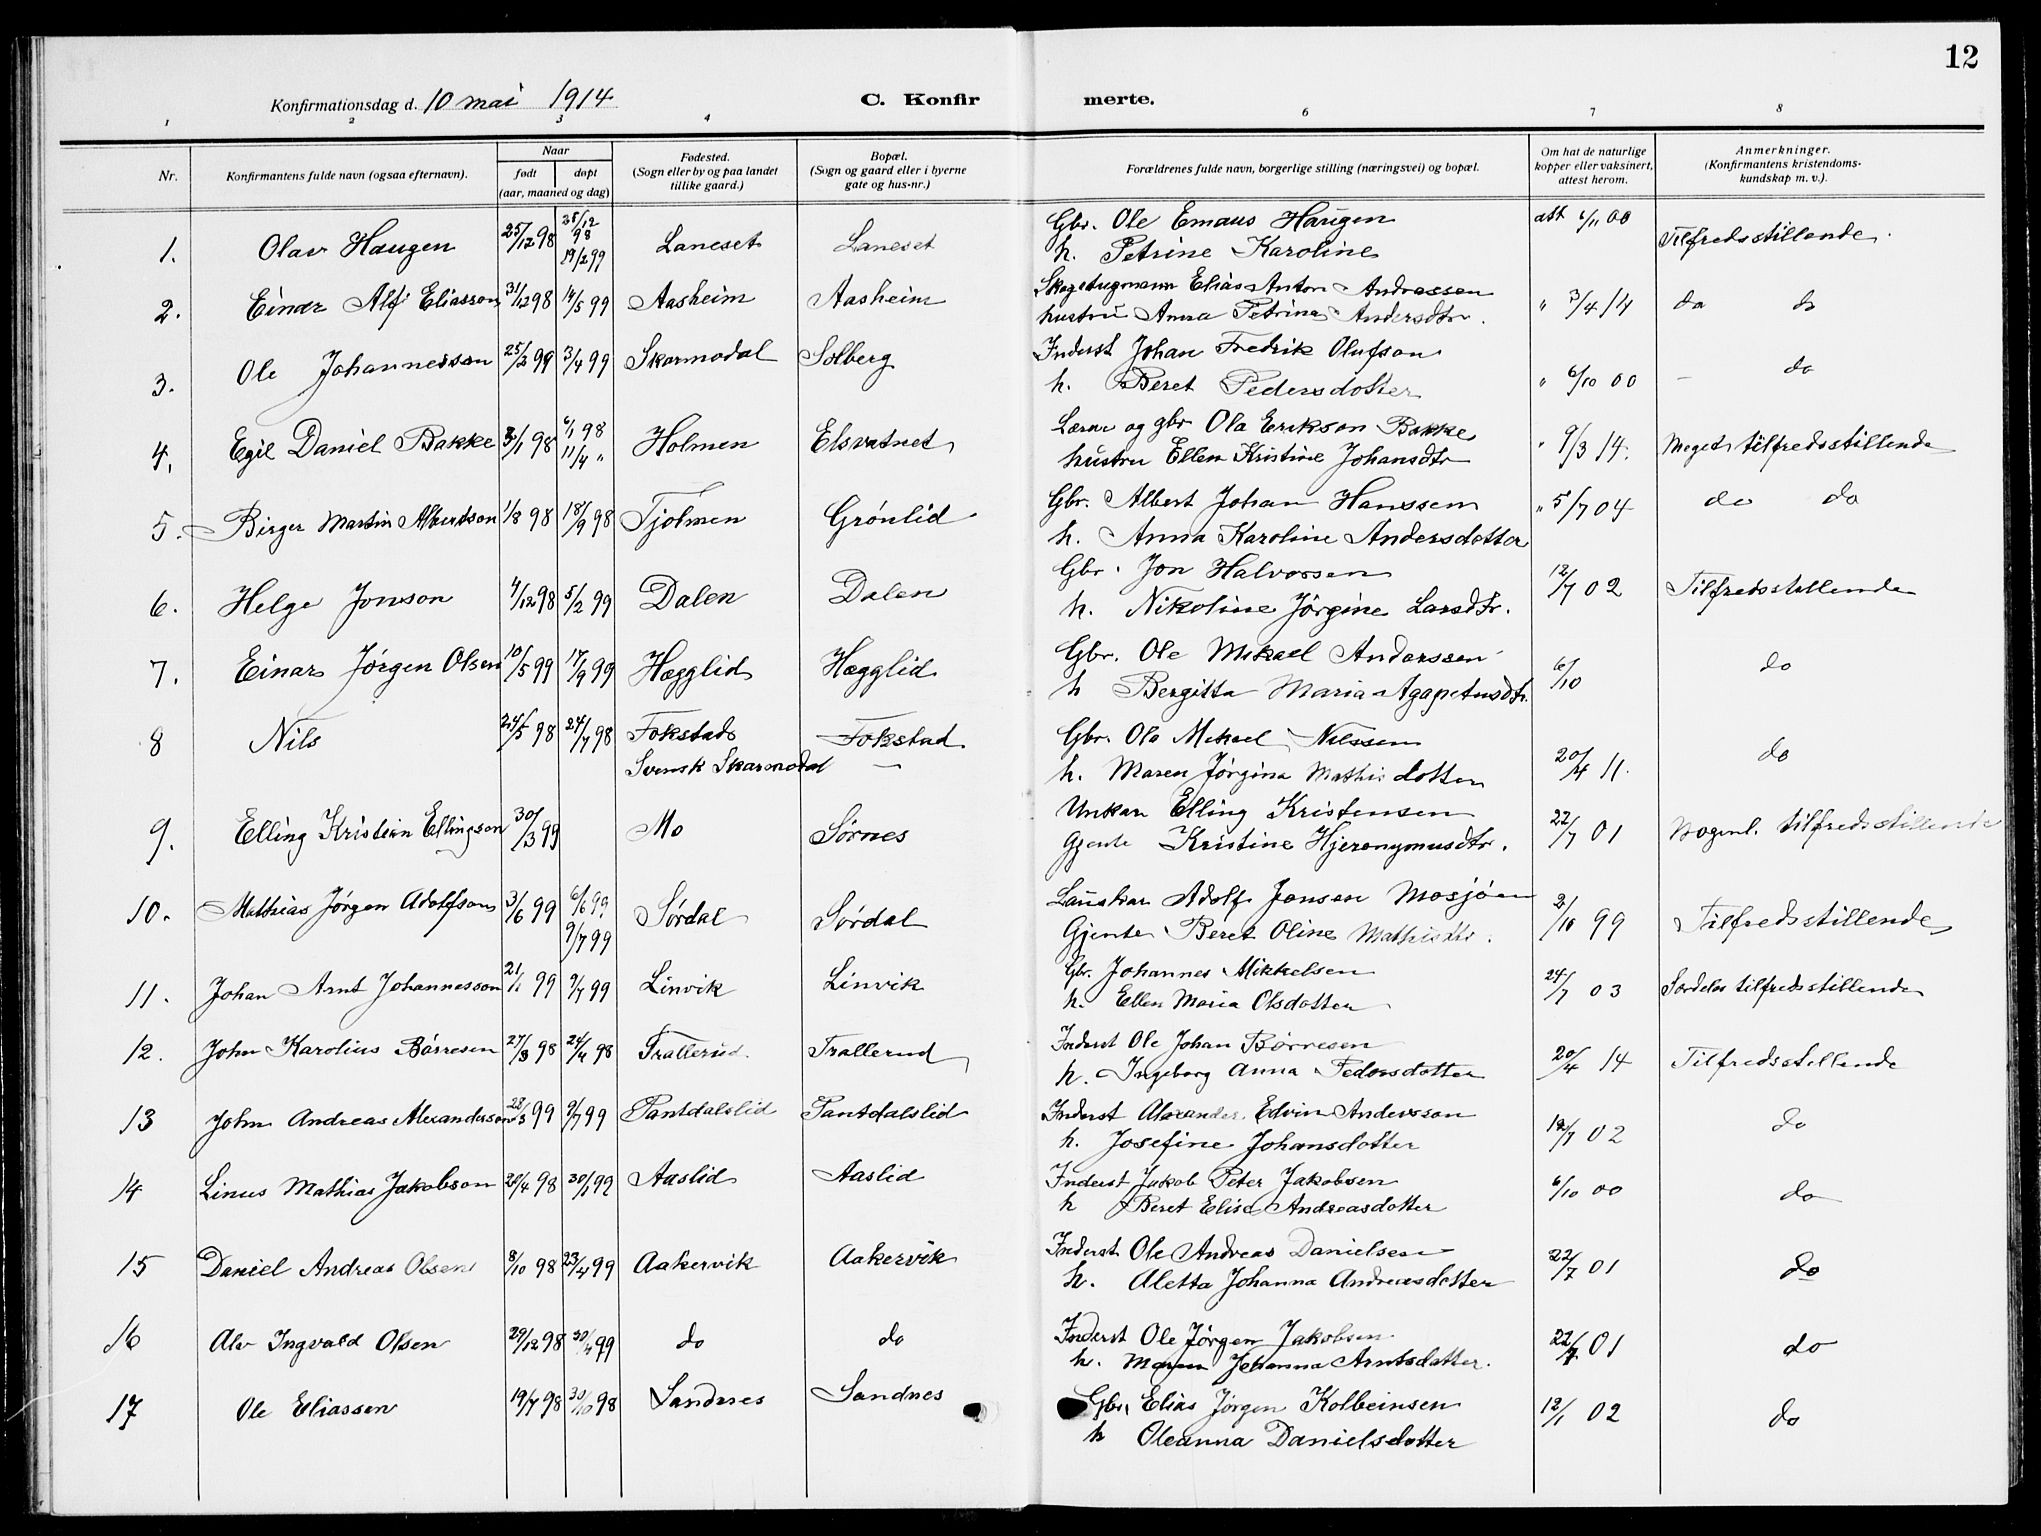 12
Konfirmationsdag d. 10 mai 1914 C. Konfirmerte.
1 2 3 4 6 7 8
Nr. Konfirmantens fulde navn (ogsaa efternavn). Naar født døpt (aar, maaned og dag) Fødested. (Sogn eller by og paa landet tillike gaard.) Bopæl. (Sogn og gaard eller i byerne gate og hus-nr.) Forældrenes fulde navn, borgerlige stilling (næringsvei) og bopæl. Om hat de naturlige kopper eller vaksinert, attest herom. Anmerkninger. (Konfirmantens kristendoms-kundskap m. v.).
1. Olav Haugen 25/12 98 25/12 98 19/2 99 Laneset Laneset Gbr. Ole Emaus Haugen att 6/11 00 Tilfredsstillende
h. Petrine Karoline
2. Einar Alf Eliasson 31/12 98 14/5 99 Aasheim Aasheim Elias Anton Andressen " 3/4 14 do do
hustru Anna Petrina Andersdtr.
3. Ole Johannesson 25/2 99 3/4 99 Skarmodal Solberg Inderst Johan Fredrik Olufson
h. Beret Pedersdotter " 6/10 00 - do
4. Egil Daniel Bakke 3/1 98 6/1 98 11/4 " Holmen Elsvatnet Lærer og gbr Ola Erikson Bakke " 9/3 14. Meget tilfredsstillende
hustru Ellen Kristine Johansdtr
5. Birger Martin Albertson 1/8 98 18/9 98 Tjolmen Grønlid Gbr. Albert Johan Hanssen " 5/7 04 do do
h. Anna Karoline Andersdotter
6. Helge Jonson 4/12 98 5/2 99 Dalen Dalen Gbr. Jon Halvorsen 12/7 02 Tilfredsstillende
h. Nikoline Jørgine Larsdtr.
7. Einar Jørgen Olsen 10/5 99 17/9 99 Hægglid Hægglid Gbr. Ole Mikael Anderssen 6/10 do
h Bergitta Maria Agapetusdtr.
8 Nils 24/5 98 24/7 98 Fokstad Fokstad Gbr. Ola Mikael Nilssen 20/4 11. do
Svensk Skarmodal — h. Maren Jørgina Mathisdotter
9. Elling Kristian Ellingson 30/3 99 Mo Sørnes Unkar Elling Kristensen 22/7 01 Nogenl. tilfredsstillende
Gjente Kristine Hjeronymusdtr.
10. Mathias Jørgen Adolfson 3/6 99 6/6 99 9/7 99 Sørdal Sørdal Adolf Jonsen Mosjøen 2/10 99 Tilfredsstillende
Gjente Beret Oline Mathisdtr.
11. Johan Arnt Johannesson 21/1 99 9/7 99 Linvik Linvik Gbr. Johannes Mikkelsen 24/7 03 Særdeles tilfredsstillende
h. Ellen Maria Olsdotter
12. John Karolius Børresen 27/3 98 24/4 98 Trallerud Trallerud Inderst Ole Johan Børresen 20/4 14 Tilfredsstillende
h. Ingeborg Anna Pedersdotter
13 John Andreas Alexanderson 28/3 99 9/7 99 Pantdalslid Pantdalslid Inderst Alexander Edvin Andersson 12/7 02 do
h. Josefine Johansdotter
14 Linus Mathias Jakobson 20/4 98 30/1 99 Aaslid Aaslid Inderst Jakob Peter Jakobsen 6/10 00 do
h Beret Elisa Andreasdotter
15 Daniel Andreas Olsen 8/10 98 23/4 99 Aakervik Aakervik Inderst Ole Andreas Danielsen 22/7 01 do
h. Aletta Johanna Andreasdotter
16 Alv Ingvald Olsen 29/12 98 30/4 99 do do Inderst Ole Jørgen Jakobsen 22/7 01 do
h. Maren Johanna Arntsdatter.
17 Ole Eliassen 19/7 98 30/10 98 Sandnes Sandnes Gbr. Elias Jørgen Kolbeinsen 12/1 02 do
h Oleanna Danielsdotter